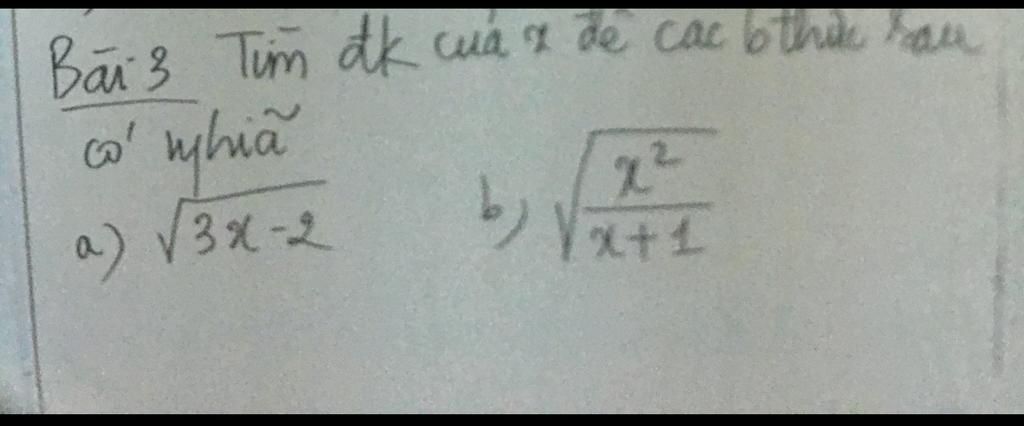 Bài 3 Tìm đk của x để các bthức sau
có nghĩã
a) √3x-2 b) √x²/x+1